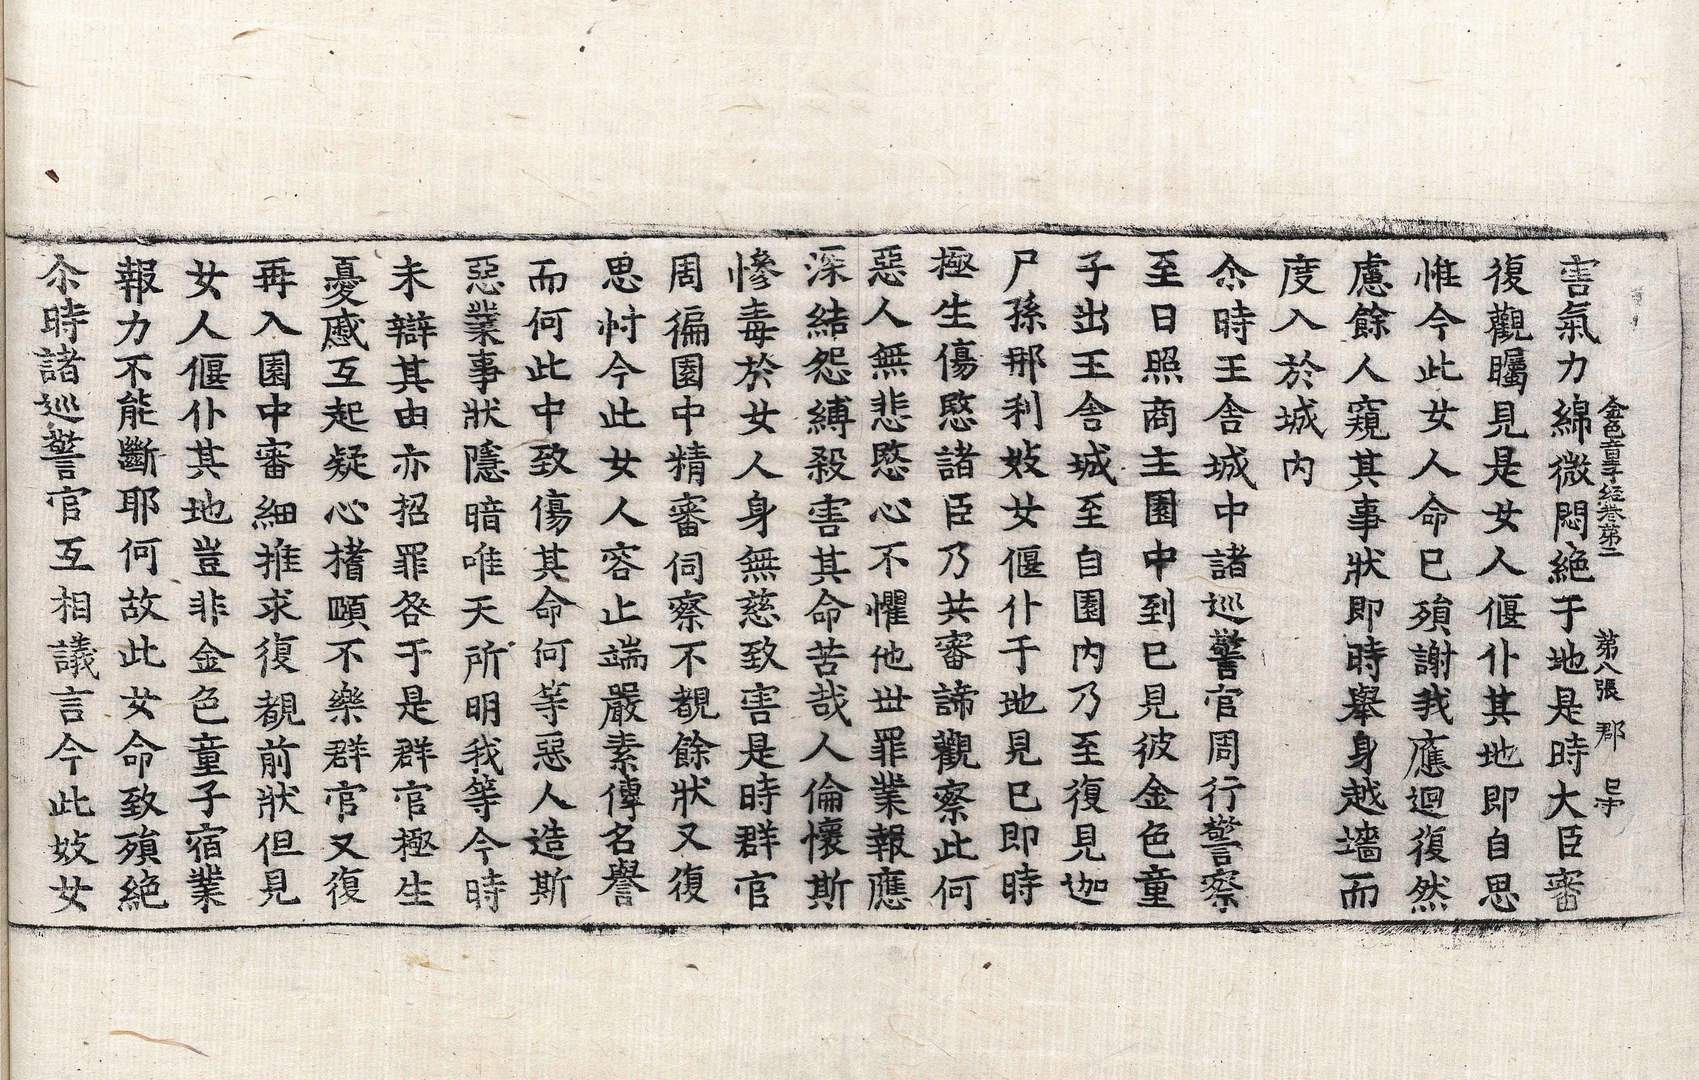 金色童子經卷第二 第八張 郡
害氣力綿微悶絕于地是時大臣審
復觀矚見是女人偃仆其地即自思
惟今此女人命已殞謝我應迴復然
慮餘人窺其事狀即時舉身越墻而
度入於城內
尒時王舍城中諸巡警官周行警察
至日照商主園中到已見彼金色童
子出王舍城至自園內乃至復見迦
尸孫那利妓女偃仆于地見已即時
極生傷愍諸臣乃共審諦觀察此何
惡人無悲愍心不懼他世罪業報應
深結怨縛殺害其命苦哉人倫懷斯
慘毒於女人身無慈致害是時群官
周徧園中精審伺察不覩餘狀又復
思忖今此女人容止端嚴素傳名譽
而何此中致傷其命何等惡人造斯
惡業事狀隱暗唯天所明我等今時
未辯其由亦招罪咎于是群官極生
憂慼互起疑心搘頤不樂群官又復
再入園中審細推求復覩前狀但見
女人偃仆其地豈非金色童子宿業
報力不能斷耶何故此女命致殞絕
尒時諸巡警官互相議言今此妓女